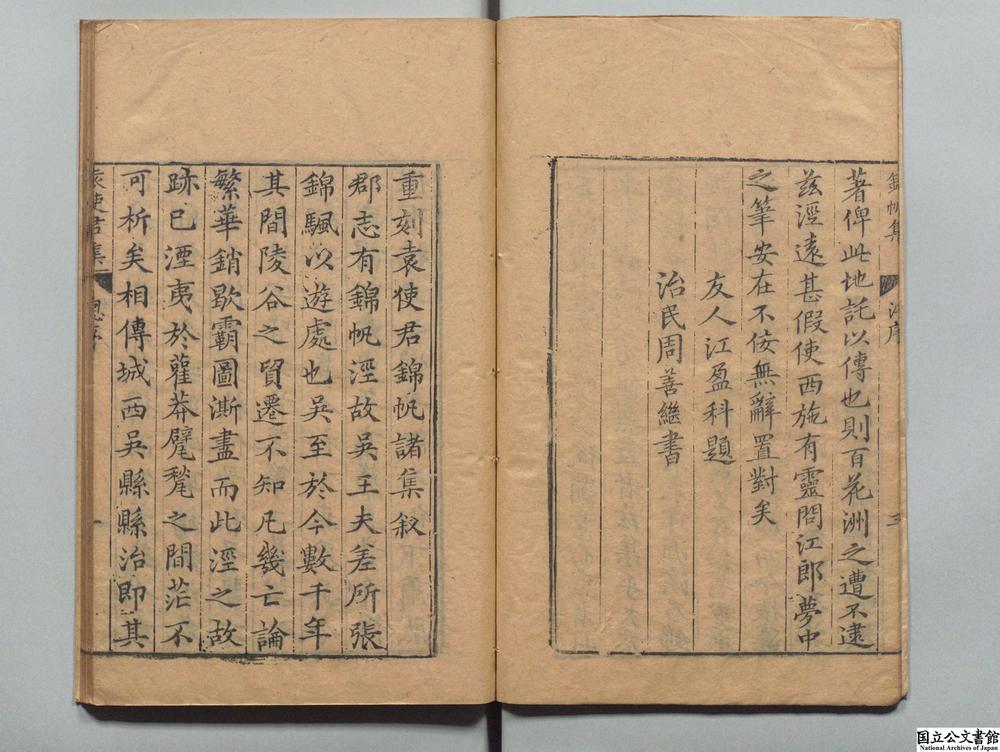 錦帆集
江序
三
著俾此地託以傳也則百花洲之遭不逮
茲涇遠甚假使西施有靈問江郎夢中
之筆安在不佞無辭置對矣
友人江盈科題
治民周善繼書
重刻袁使君錦帆諸集敘
郡志有錦帆涇故吳王夫差所張
錦颿以遊處也吳至於今數千年
其間陵谷之貿遷不知凡幾亡論
繁華銷歇霸圖澌盡而此涇之故
跡已湮夷於藋莽甓甃之間茫不
可析矣相傳城西吳縣縣治即其
袁使君集
總序
一
国立公文書館
National Archives of Japan